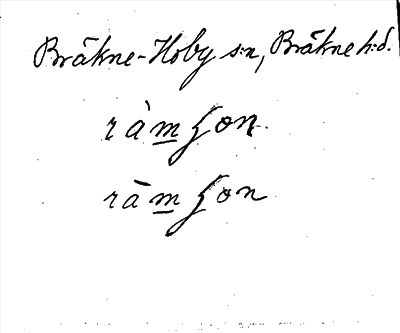 Bräkne-Hoby s:n, Bräkne h:d.
ràm̲ʃon
rām̲ʃon